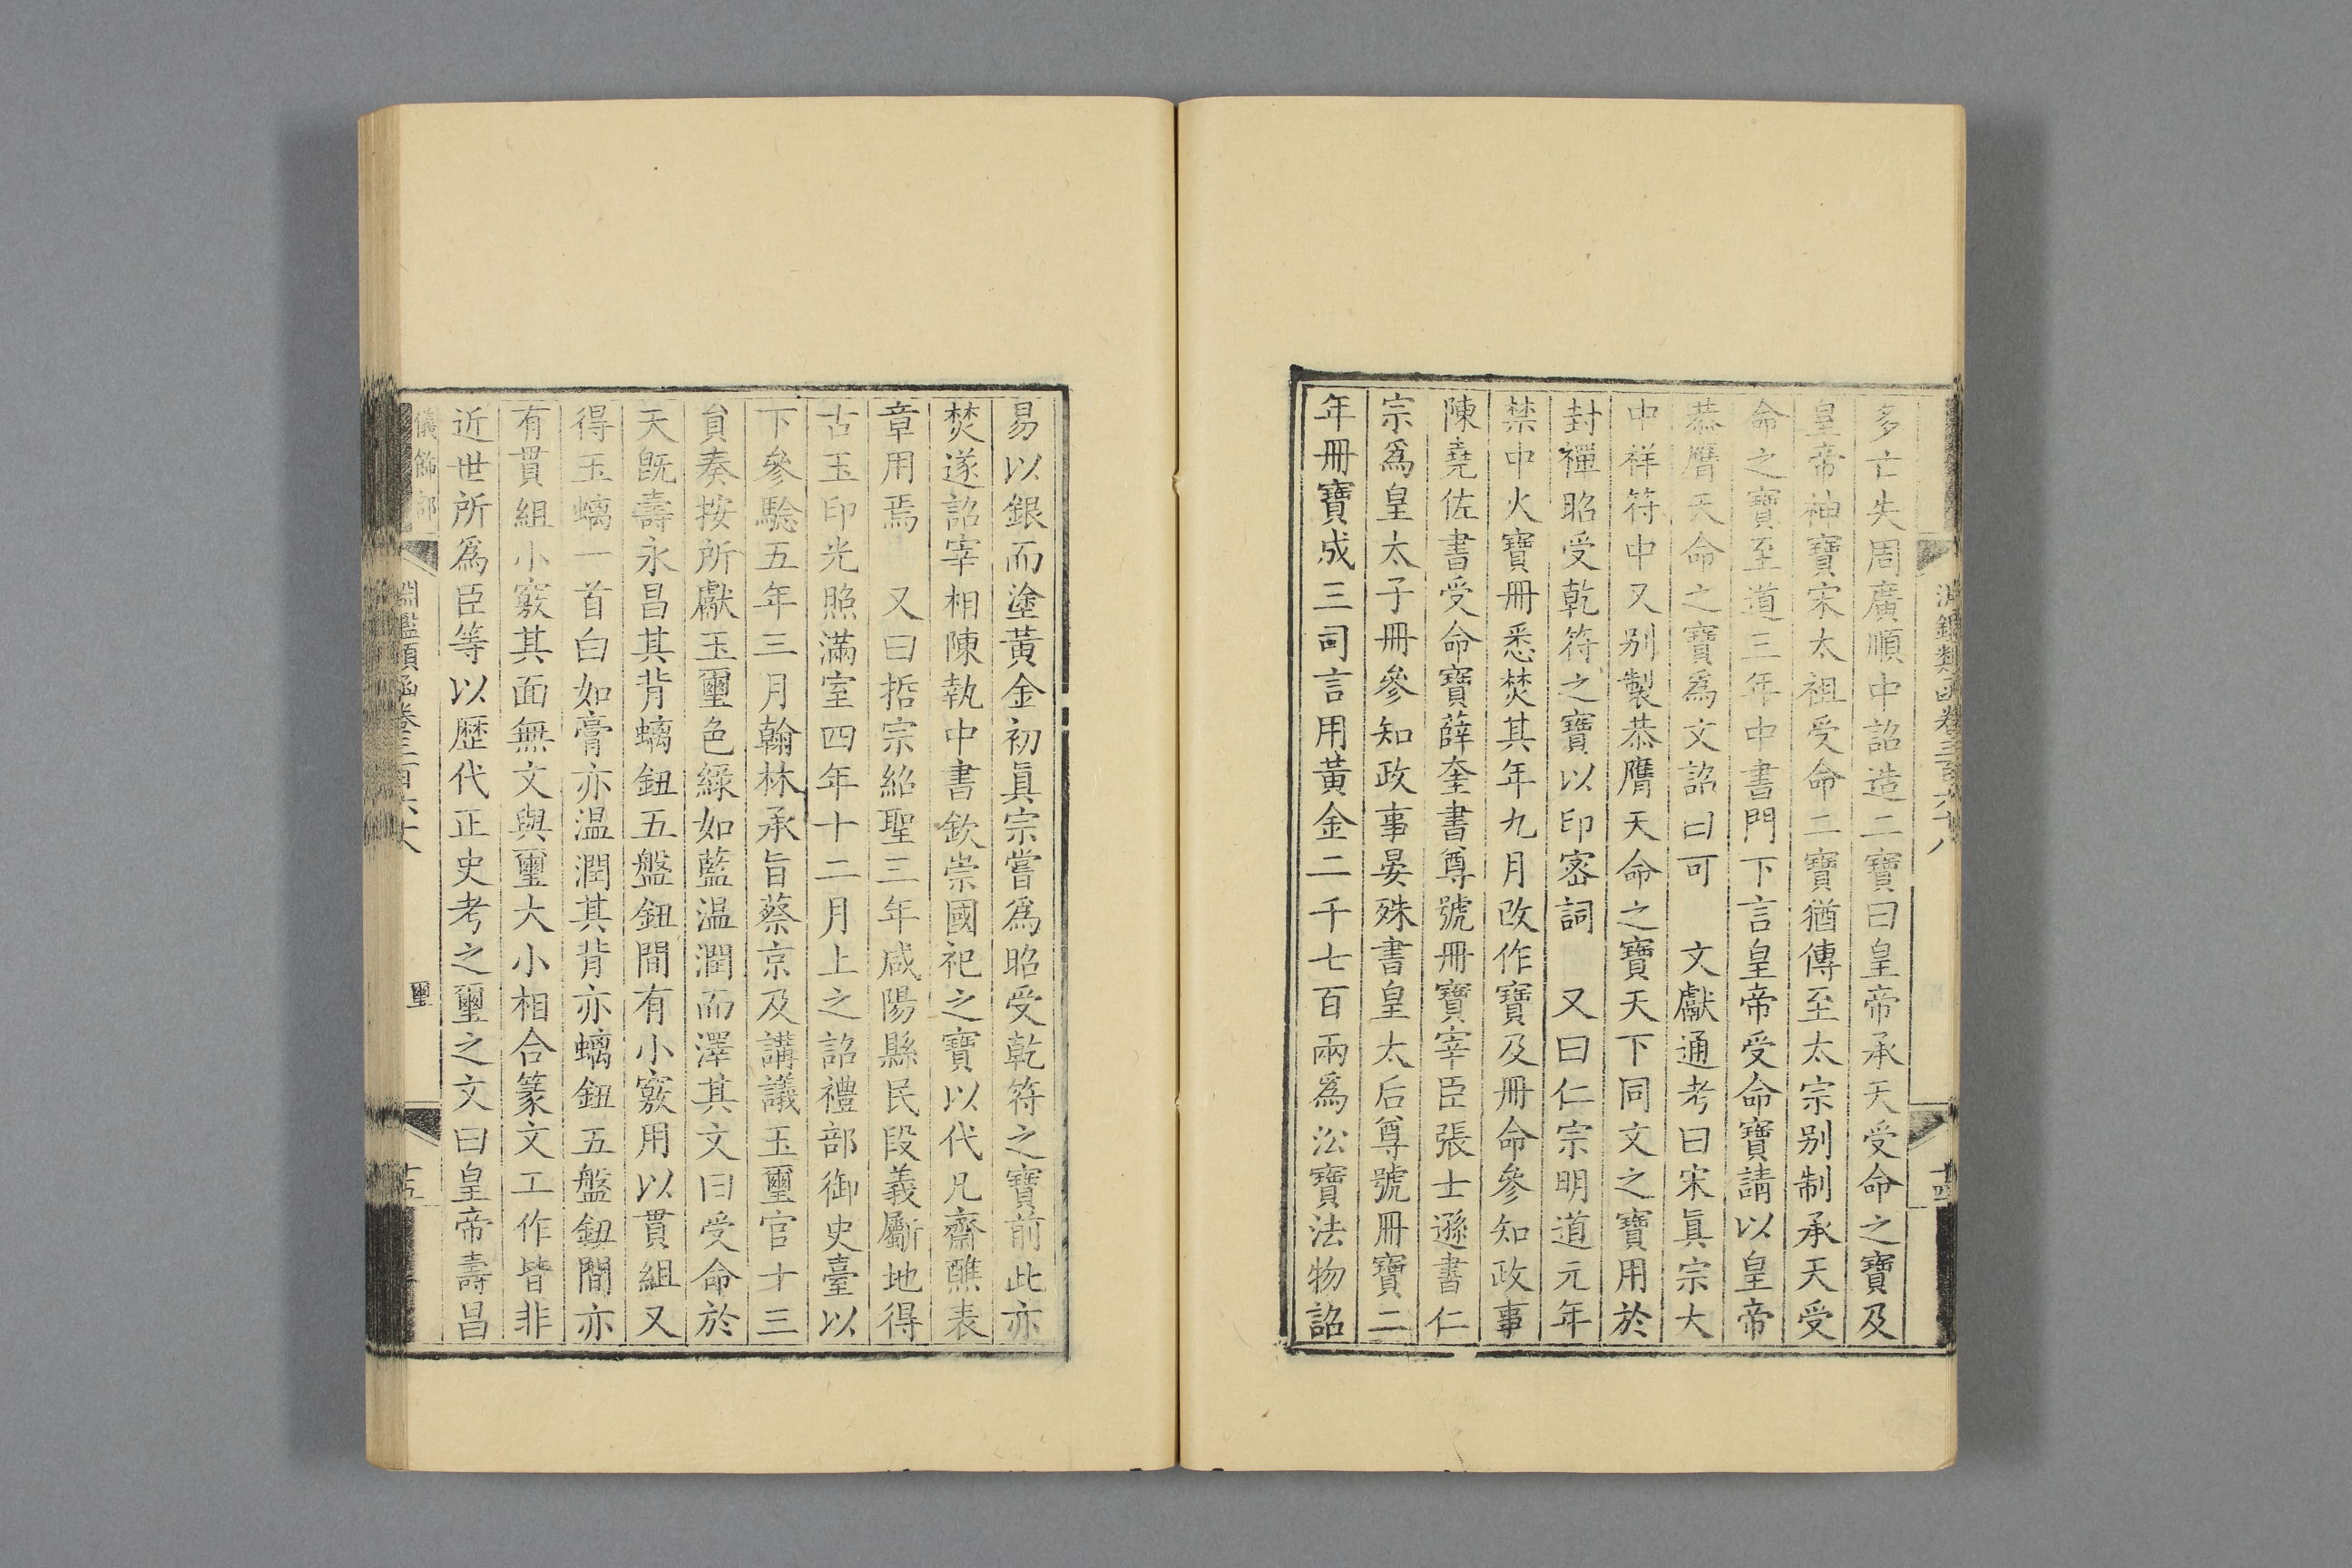 多亡失周廣順中詔造二寶曰皇帝承天受命之寶及
皇帝神寶宋太祖受命二寶猶傳至太宗别制承天受
命之寶至道三年中書門下言皇帝受命寶請以皇帝
恭膺天命之寶爲文詔曰可　文獻通考曰宋眞宗大
中祥符中又别製恭膺天命之寶天下同文之寶用於
封禪昭受乾符之寶以印宻詞　又曰仁宗明道元年
禁中火寶冊悉焚其年九月改作寶及冊命參知政事
陳堯佐書受命寶薛奎書尊號冊寶宰臣張士遜書仁
宗爲皇太子冊參知政事晏殊書皇太后尊號冊寶二
年冊寶成三司言用黃金二千七百兩爲㳂寶法物詔
易以銀而塗黃金初眞宗嘗爲昭受乾符之寶前此亦
焚遂詔宰相陳執中書欽崇國祀之寶以代凡齋醮表
章用焉　又曰哲宗紹聖三年咸陽縣民段義斸地得
古玉印光照滿室四年十二月上之詔禮部御史臺以
下參騐五年三月翰林承旨蔡京及講議玉璽官十三
貟奏按所獻玉璽色綠如藍温潤而澤其文曰受命於
天旣壽永昌其背螭鈕五盤鈕間有小竅用以貫組又
得玉螭一首白如膏亦温潤其背亦螭鈕五盤鈕間亦
有貫組小竅其面無文與璽大小相合篆文工作皆非
近世所爲臣等以歷代正史考之璽之文曰皇帝壽昌
儀飾部
淵鑑類函卷三百六十八
璽
十五